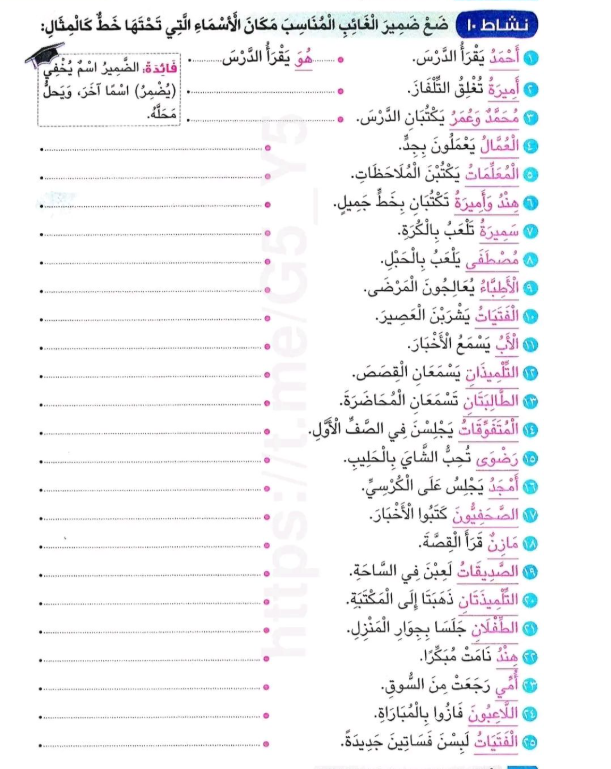 نشاط ١٠ ضَعْ ضَمِيرَ الْغَائِبِ الْمُنَاسِبَ مَكَانَ الْأَسْمَاءِ الَّتِي تَحْتَهَا خَطٌّ كَالْمِثَالِ:
١ أَحْمَدُ يَقْرَأُ الدَّرْسَ. هُوَ يَقْرَأُ الدَّرْسَ.
فَائِدَةٌ: الضَّمِيرُ اسْمٌ يُخْفِي
(يُضْمِرُ) اسْمًا آخَرَ، وَيَحِلُّ
مَحَلَّهُ.
٢ أَمِيرَةُ تُغْلِقُ التِّلْفَازَ.
٣ مُحَمَّدٌ وَعُمَرُ يَكْتُبَانِ الدَّرْسَ.
٤ الْعُمَّالُ يَعْمَلُونَ بِجِدٍّ.
٥ الْمُعَلِّمَاتُ يَكْتُبْنَ الْمُلَاحَظَاتِ.
٦ هِنْدُ وَأَمِيرَةُ تَكْتُبَانِ بِخَطٍّ جَمِيلٍ.
٧ سَمِيرَةُ تَلْعَبُ بِالْكُرَةِ.
٨ مُصْطَفَى يَلْعَبُ بِالْحَبْلِ.
٩ الْأَطِبَّاءُ يُعَالِجُونَ الْمَرْضَى.
١٠ الْفَتَيَاتُ يَشْرَبْنَ الْعَصِيرَ.
١١ الْأَبُ يَسْمَعُ الْأَخْبَارَ.
١٢ التِّلْمِيذَانِ يَسْمَعَانِ الْقِصَصَ.
١٣ الطَّالِبَتَانِ تَسْمَعَانِ الْمُحَاضَرَةَ.
١٤ الْمُتَفَوِّقَاتُ يَجْلِسْنَ فِي الصَّفِّ الْأَوَّلِ.
١٥ رَضْوَى تُحِبُّ الشَّايَ بِالْحَلِيبِ.
١٦ أَمْجَدُ يَجْلِسُ عَلَى الْكُرْسِيِّ.
١٧ الصَّحَفِيُّونَ كَتَبُوا الْأَخْبَارَ.
١٨ مَازِنٌ قَرَأَ الْقِصَّةَ.
١٩ الصَّدِيقَاتُ لَعِبْنَ فِي السَّاحَةِ.
٢٠ التِّلْمِيذَتَانِ ذَهَبَتَا إِلَى الْمَكْتَبَةِ.
٢١ الطِّفْلَانِ جَلَسَا بِجِوَارِ الْمَنْزِلِ.
٢٢ هِنْدُ نَامَتْ مُبَكِّرًا.
٢٣ أُمِّي رَجَعَتْ مِنَ السُّوقِ.
٢٤ اللَّاعِبُونَ فَازُوا بِالْمُبَارَاةِ.
٢٥ الْفَتَيَاتُ لَبِسْنَ فَسَاتِينَ جَدِيدَةً.
https://t.me/G5_Y5